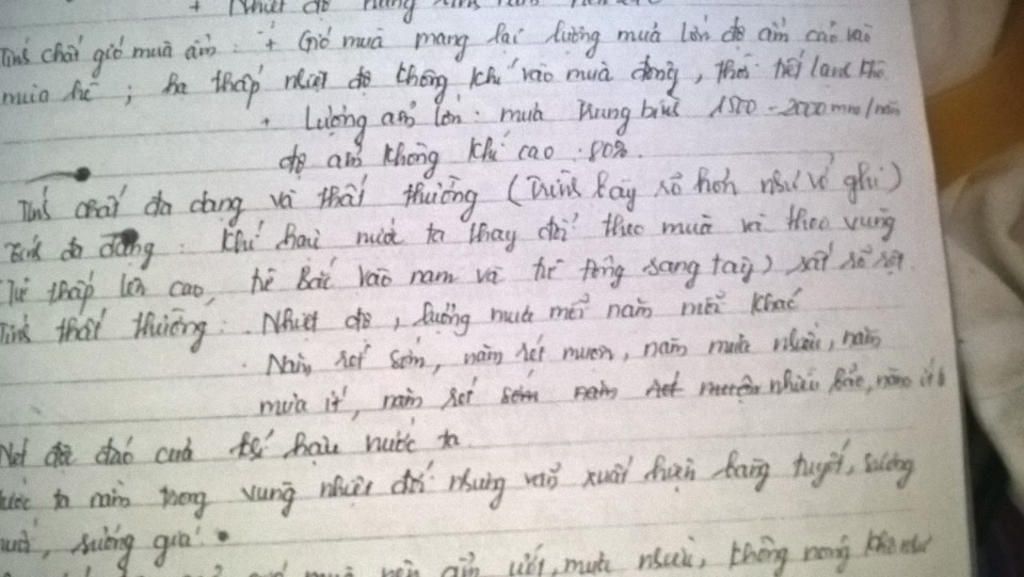 + Nhiệt độ
Tính chất gió mùa ẩm: + Gió mùa mang lại lượng mưa lớn độ ẩm cao vào
mùa hè; hạ thấp nhiệt độ không khí vào mùa đông, thời tiết lạnh khô
+ Lượng ẩm lớn: mưa trung bình 1500-2000mm/năm
độ ẩm không khí cao: 80%.
Tính chất đa dạng và thất thường (Trình bày rõ hơn như vở ghi)
Tính đa dạng: Khí hậu nước ta thay đổi theo mùa và theo vùng
Từ thấp lên cao, từ Bắc vào nam và từ đông sang tây) rất rõ rệt.
Tính thất thường: Nhiệt độ, lượng mưa mỗi năm mỗi khác
Năm rét sớm, năm rét muộn, năm mưa nhiều, năm
mưa ít, năm rét sớm năm rét muộn nhiều bão, năm ít b
Nét độc đáo của khí hậu nước ta
nước ta nằm trong vùng nhiệt đới nhưng vẫn xuất hiện băng tuyết, sương
muối, sương giá.
ẩm ướt, mưa nhiều, không nóng khô như